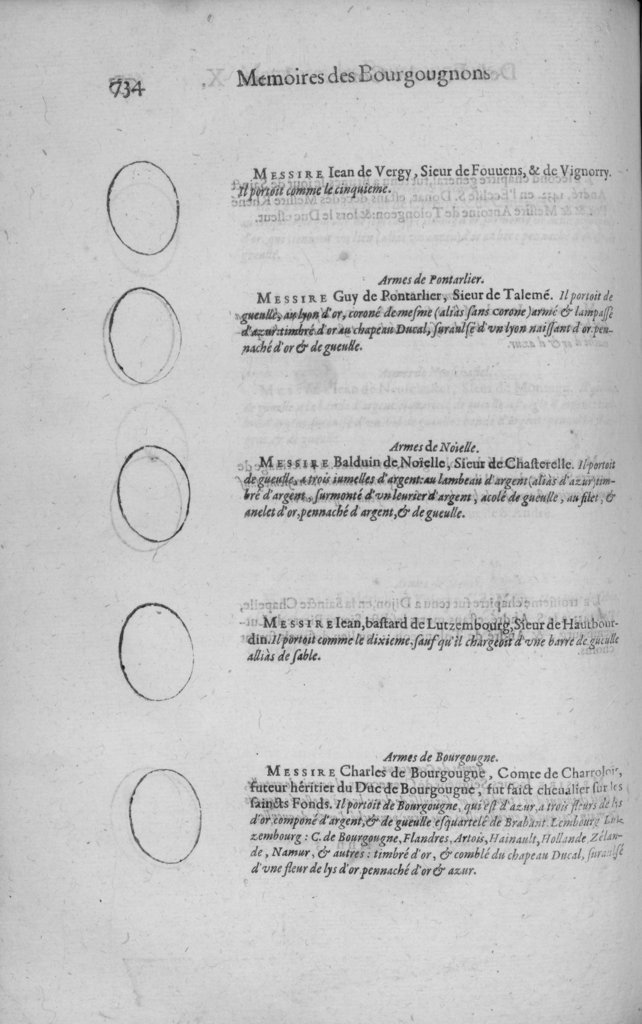 734 Memoires des Bourgougnons
MESSIRE Iean de Vergy, Sieur de Fouuens, & de Vignorry.
Il portoit comme le cinquieme.
Armes de Pontarlier.
MESSIRE Guy de Pontarlier, Sieur de Talemé. Il portoit de
gueulle, au lyon d'or, coroné de mesme (alias sans corone) armé & lampassé
d'azur: timbré d'or au chapeau Ducal, suraulsé d'vn lyon naissant d'or pen-
naché d'or & de gueulle.
Armes de Noielle.
MESSIRE Balduin de Noielle, Sieur de Chasterelle. Il portoit
de gueulle, a trois iumelles d'argent: au lambeau d'argent (aliàs d'azur) tim-
bré d'argent, surmonté d'vn leurier d'argent, acolé de gueulle, au filet, &
anelet d'or, pennaché d'argent, & de gueulle.
MESSIRE Iean, bastard de Lutzembourg, Sieur de Hautbour-
din. Il portoit comme le dixieme, sauf qu'il chargeoit d'vne barre de gueulle
alliàs de sable.
Armes de Bourgougne.
MESSIRE Charles de Bourgougne, Comte de Charrolois,
futeur héritier du Duc de Bourgougne, fut faict cheualier sur les
saincts Fonds. Il portoit de Bourgougne, qui est d'azur, a trois fleurs de lis
d'or componé d'argent, & de gueulle esquartelé de Brabant. Lembourg Lut-
zembourg: C. de Bourgougne, Flandres, Artois, Hainault, Hollande, Zélan-
de, Namur, & autres: timbré d'or, & comblé du chapeau Ducal, suraulsé
d'vne fleur de lys d'or pennaché d'or & azur.